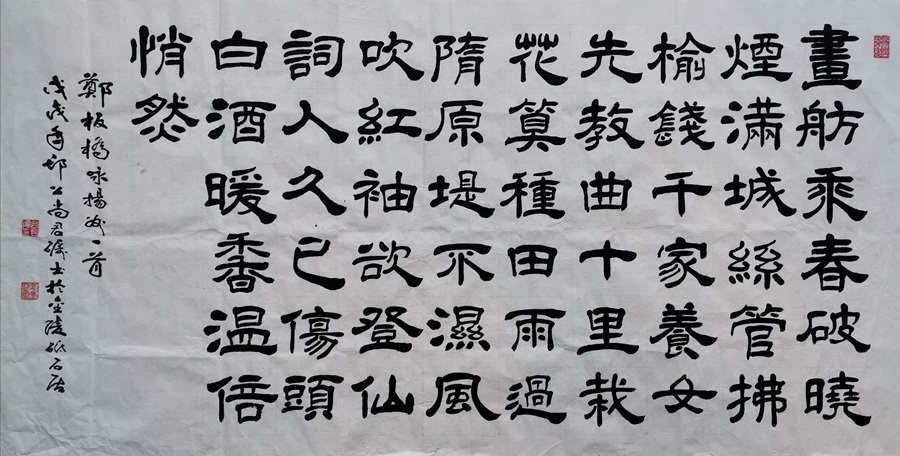 畫舫乘春破曉
煙滿城絲管拂
榆錢千家養女
先教曲十里栽
花算種田雨過
隋原堤不濕風
吹紅袖欲登仙
詞人久已傷頭
白酒暖香温倍
悄然
鄭板橋咏揚州一首
戊戌年尚君書於金陵石居